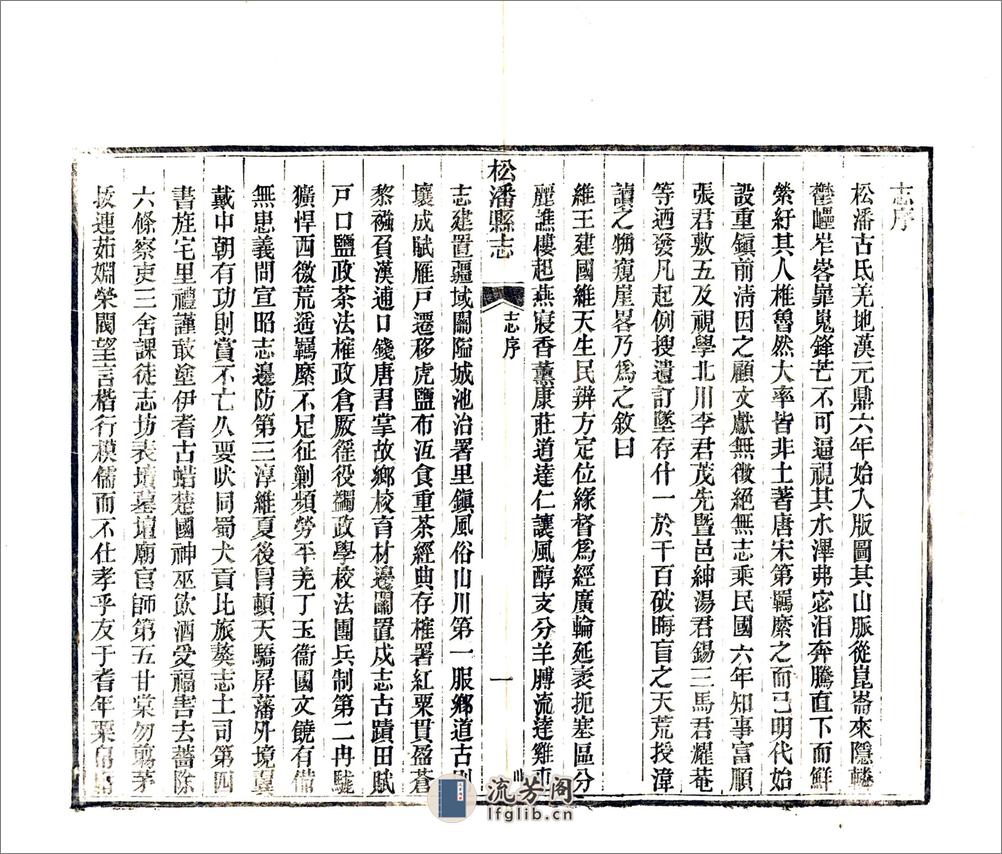 志序
松潘古氐羌地漢元鼎六年始入版圖其山脈從崑崙來隱轔
鬱壘岸峉崒嵬鋒芒不可逼視其水潷弗宓汨奔騰直下而鮮
縈紆其人椎魯然大率皆非土著唐宋第羈縻之而已明代始
設重鎮前清因之顧文獻無徵絕無志乘民國六年知事富順
張君敷五及視學北川李君茂先暨邑紳湯君錫三馬君耀菴
等迺發凡起例搜遺訂墜存什一於千百破晦盲之天荒授湋
讀之獮窺崖畧乃為之敘曰
維王建國維天生民辨方定位緣督爲經廣輪延袤扼塞區分
麗譙樓起燕寢香薰康莊道達仁讓風醇支分羊膊流達雞
松潘縣志
志序
一
志建置疆域關隘城池治署里鎮風俗山川第一服鄉道古
壤成賦雁戶遷移虎鹽布冱食重茶經典存榷署紅粟貫盈蒼
黎襁負漢通口錢唐習掌故鄉校育材邊關置戍志古蹟田賦
戸口鹽政茶法榷政倉厫徭役蠲政學校法團兵制第二冉駹
獷悍西徼荒遥羈縻不足征剿頻勞平羌丁玉衞國文饒有備
無患義問宣昭志邊防第三淳維夏後冒頓天驕屏藩外境翼
戴中朝有功則賞不亡久要吠同蜀犬貢比旅葵志土司第四
書旌宅里禮謹敢塗伊耆古蜡楚國神巫飲酒受福害去薔除
六條察吏三舍課徒志坊表墳墓壇廟官師第五甘棠勿翦茅
拔連茹婣榮閥望言楷行模儒而不仕孝乎友于耆年粟帛
流芳阁
lfglib.cn